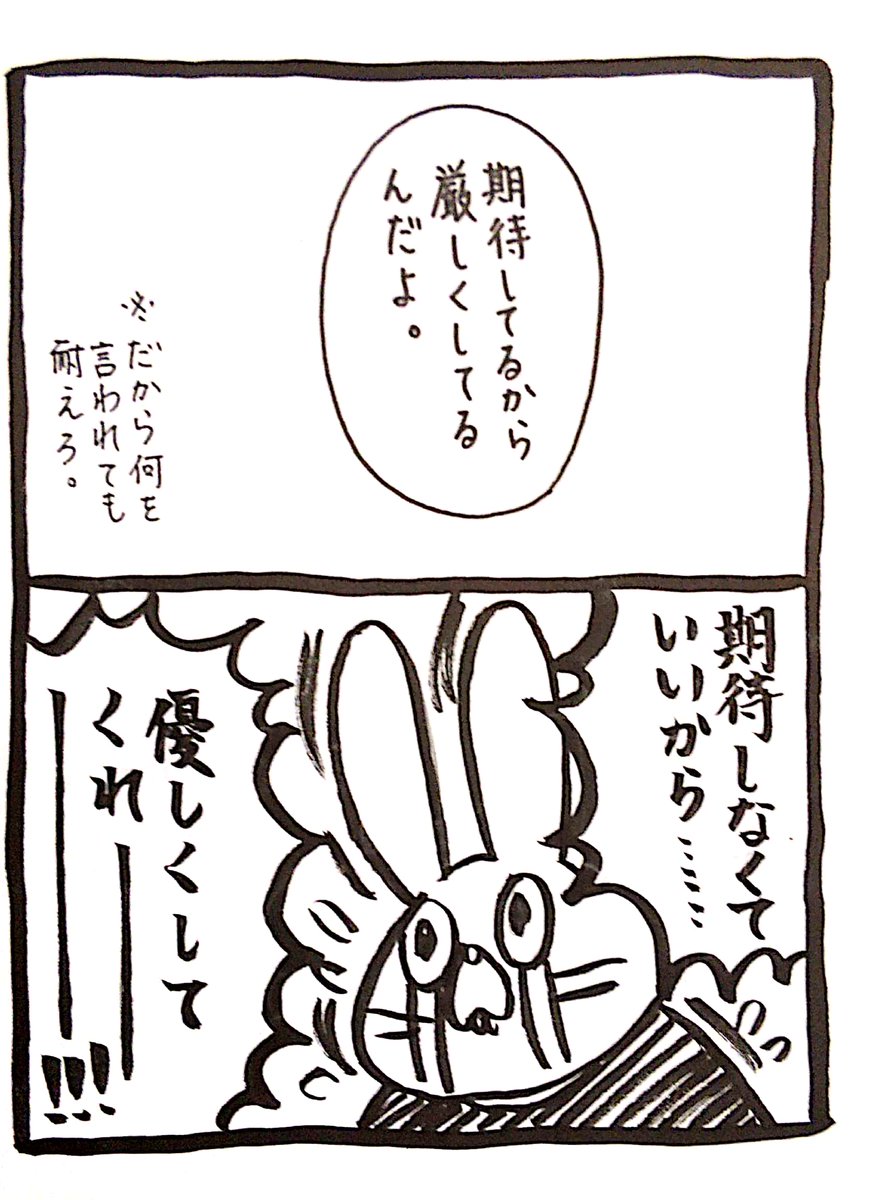 期待してるから
厳しくしてる
んだよ。
※だから何を
言われても
耐えろ。
期待しなくて
いいから……
優しくして
くれ――!!!
っ